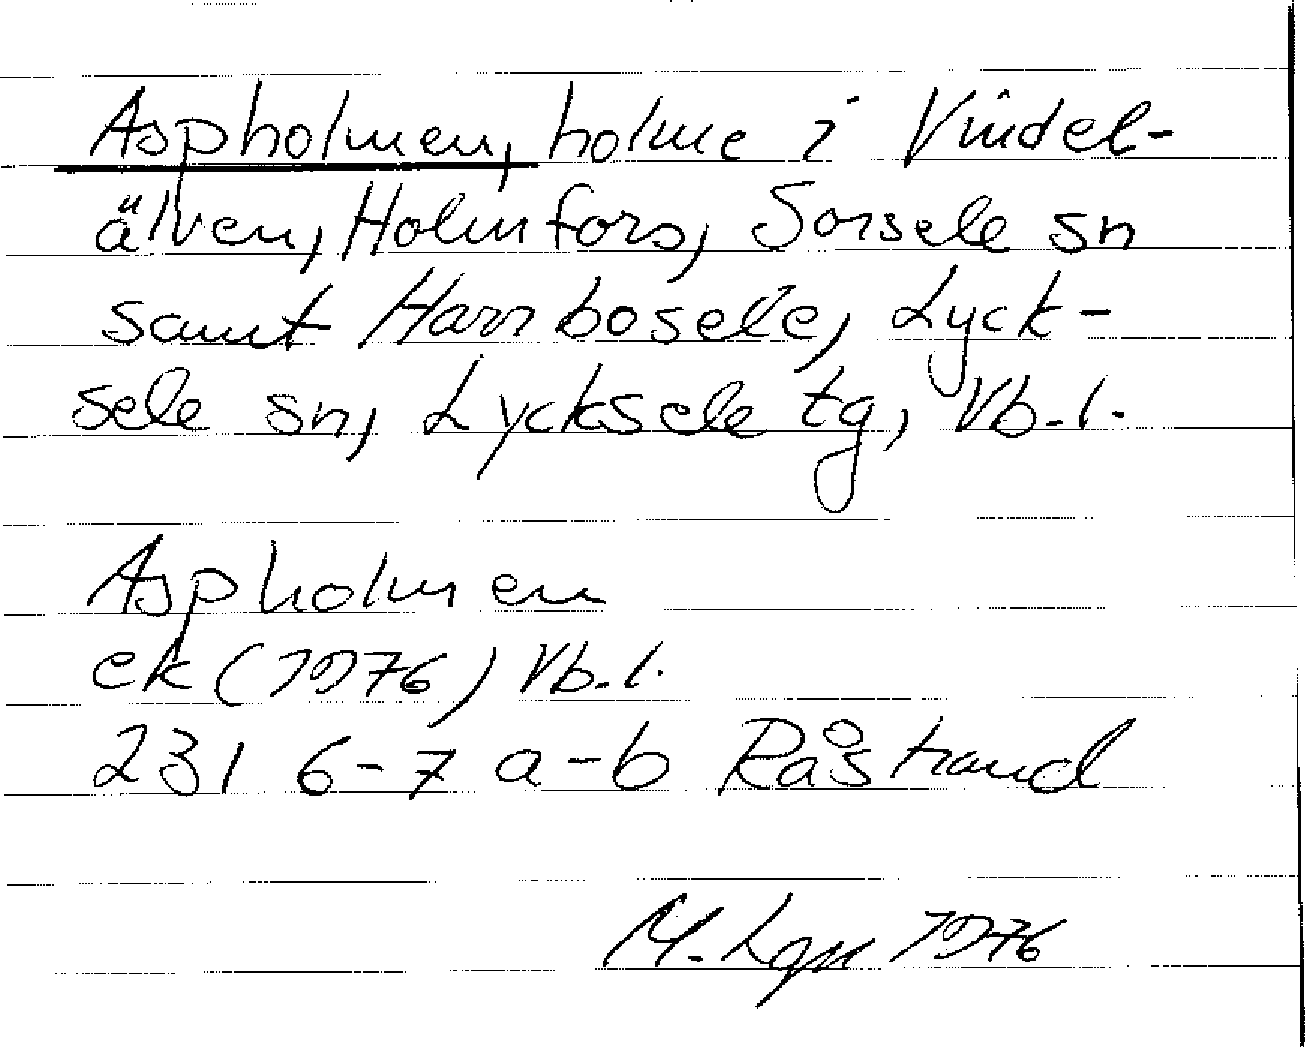 Aspholmen, holme i Vindel-
älven, Holmfors, Sorsele sn
samt Harrbosele, Lyck-
sele sn, Lycksele tg, Vb.l.
Aspholmen
ek (1976) Vb.l.
23I 6-7 a-b Råstrand
M. Lgn 1976